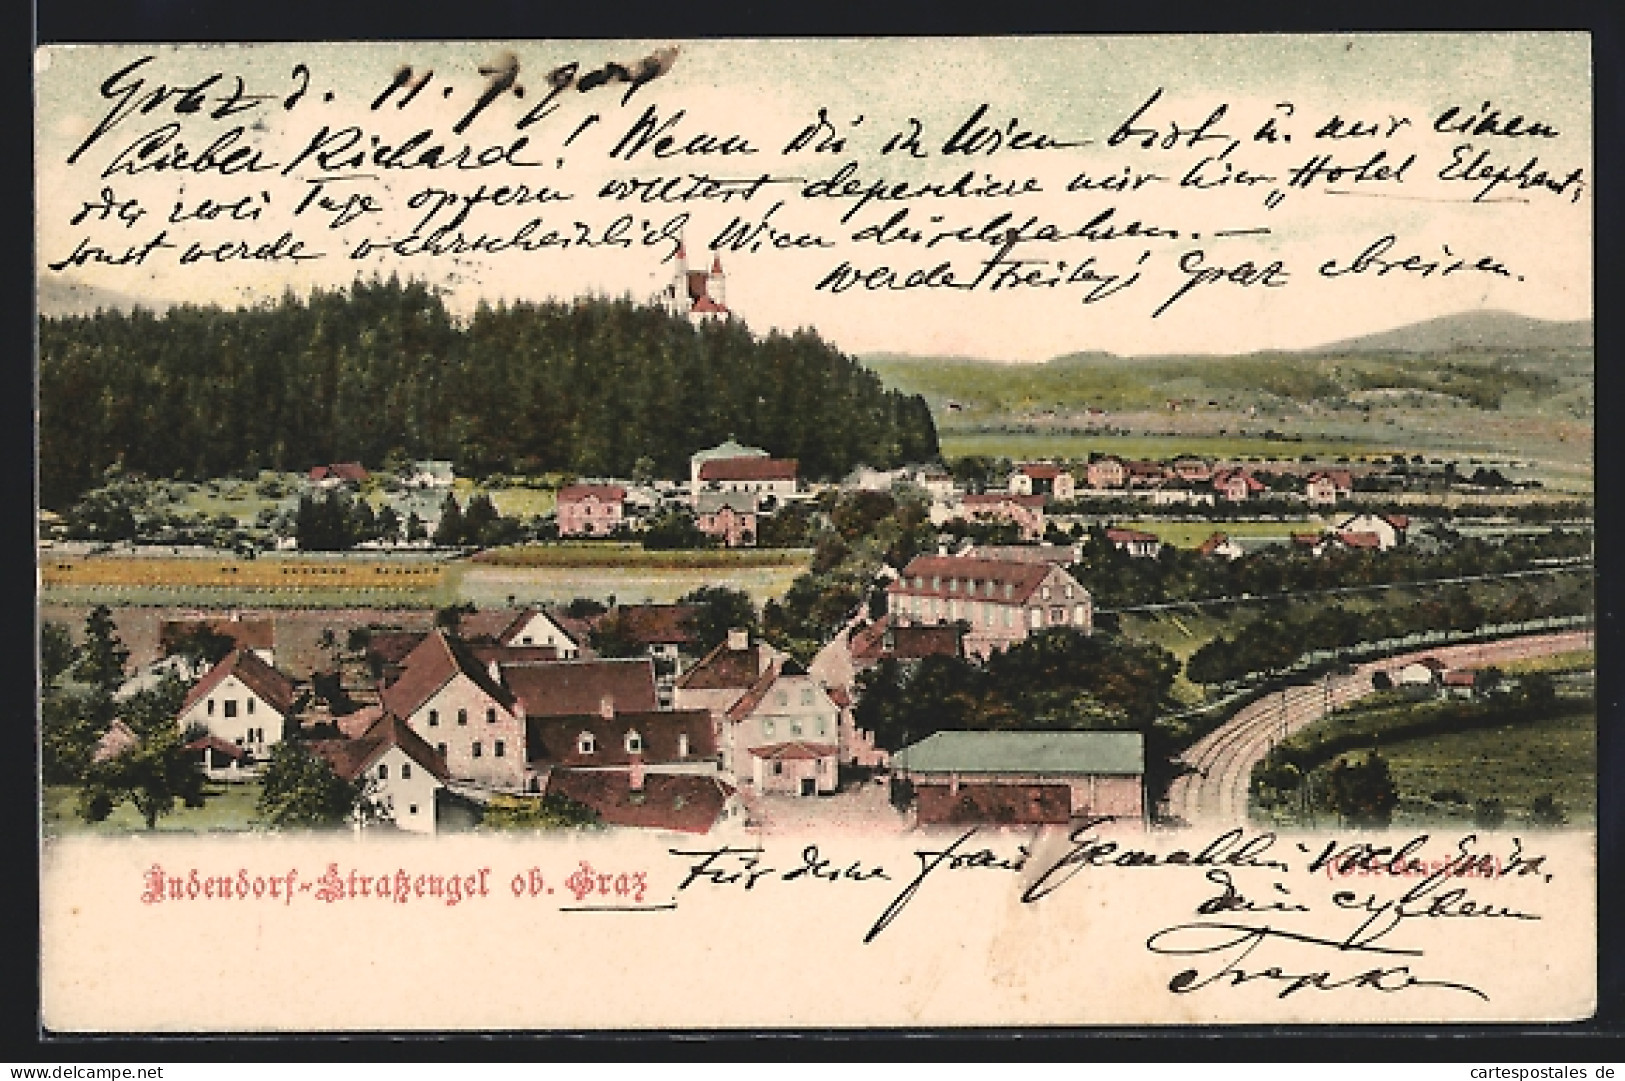 Graz d. 11. 7. 904
Lieber Richard! Wenn Du in Wien bist, u. mir einen
oder zwei Tage opfern wolltest, depeschiere mir hier „Hotel Elephant“,
sonst werde wahrscheinlich Wien durchfahren. —
werde Freitag Graz abreisen.
Judendorf-Straßengel ob. Graz
Für deine Frau Gemahlin
Dein